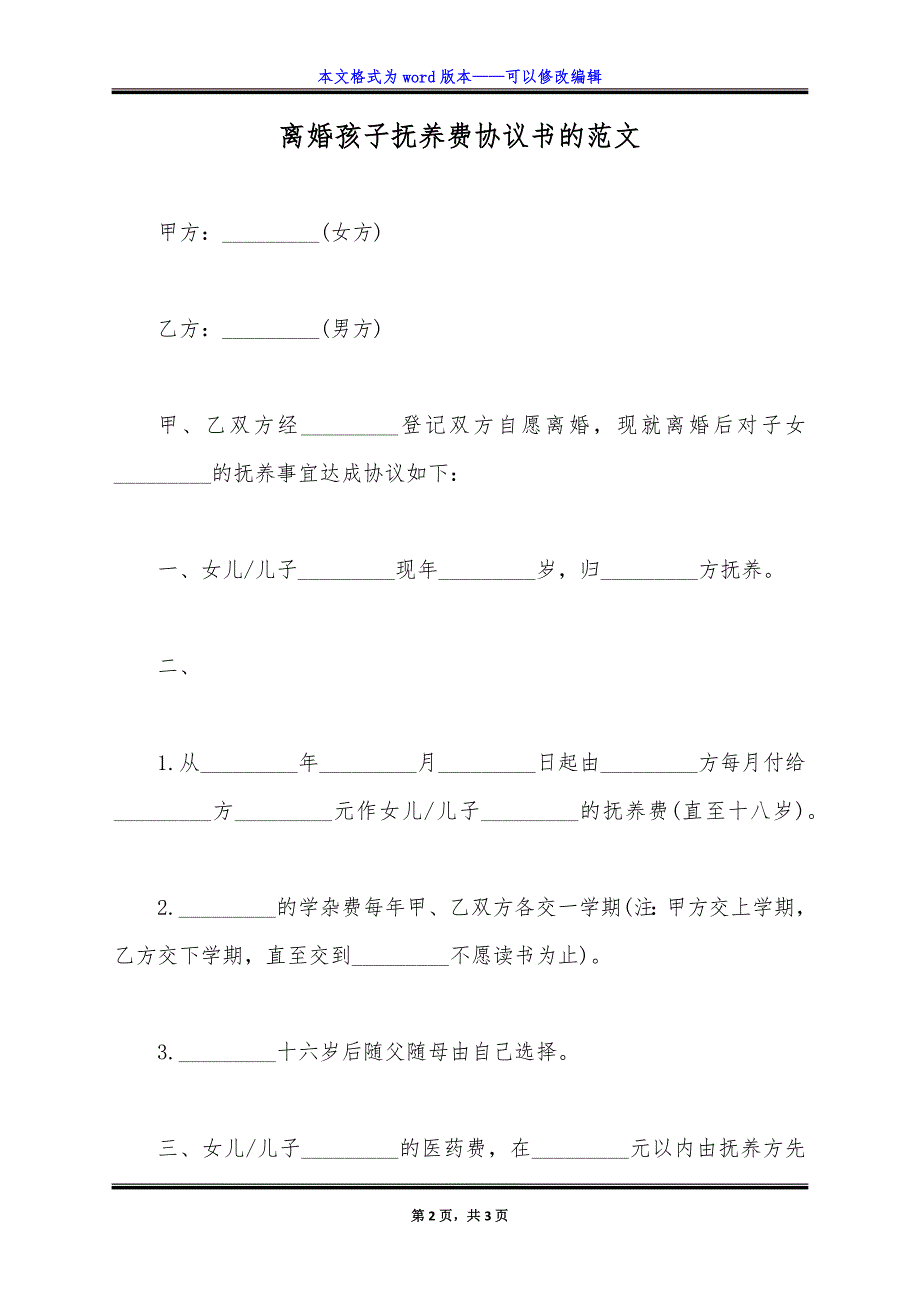 本文格式为 word 版本——可以修改编辑
离婚孩子抚养费协议书的范文
甲方：_________(女方)
乙方：_________(男方)
甲、乙双方经_________登记双方自愿离婚，现就离婚后对子女
_________的抚养事宜达成协议如下：
一、女儿/儿子_________现年_________岁，归_________方抚养。
二、
1.从_________年_________月_________日起由_________方每月付给
_________方_________元作女儿/儿子_________的抚养费(直至十八岁)。
2._________的学杂费每年甲、乙双方各交一学期(注：甲方交上学期，
乙方交下学期，直至交到_________不愿读书为止)。
3._________十六岁后随父随母由自己选择。
三、女儿/儿子_________的医药费，在_________元以内由抚养方先
第 2 页，共 3 页